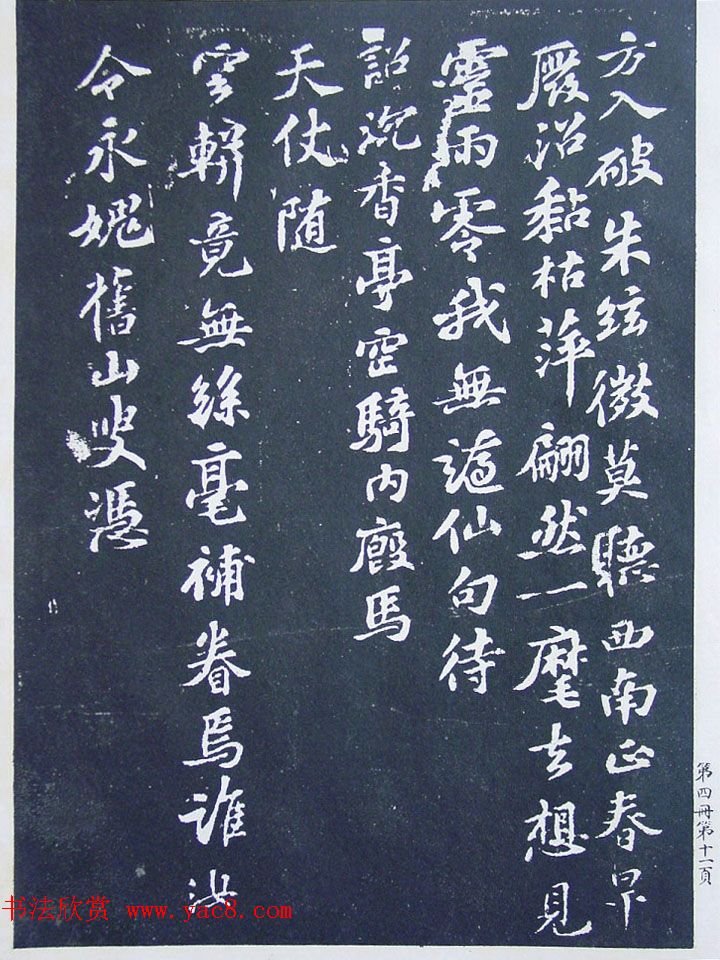 方入破朱絃微莫聽西南正春旱
廢沼黏枯萍翩然一麾去想見
靈雨零我無謫仙句待
詔沉香亭空騎内廄馬
天仗随
雲軿竟無絲毫補眷焉誰汝
令永媿舊山叟憑
第四冊第十一頁
书法欣赏 www.yac8.com